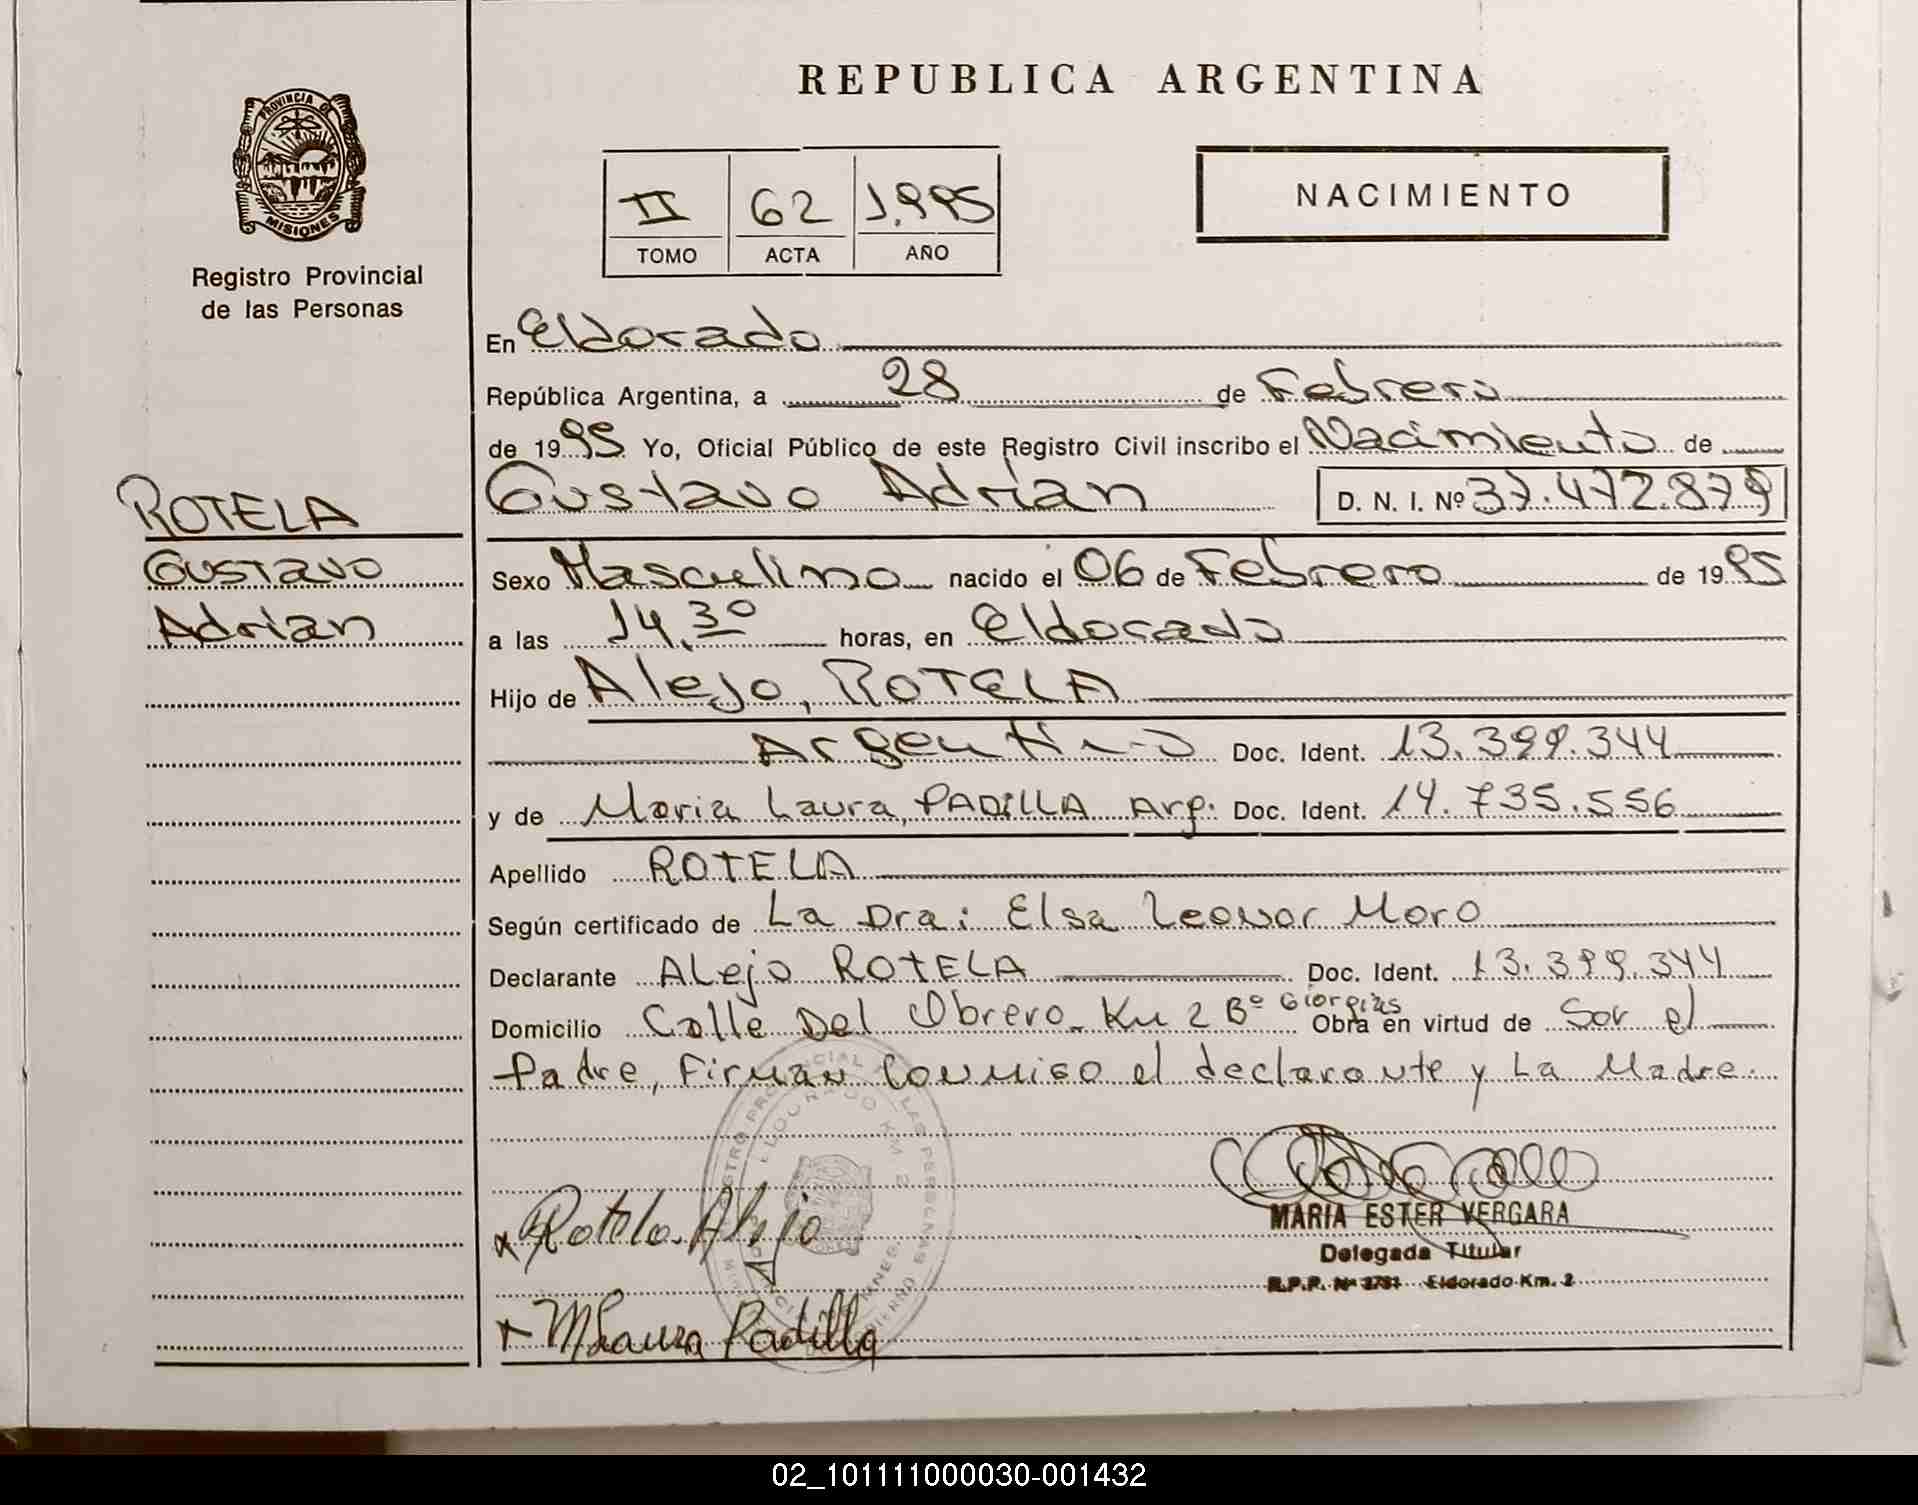 REPUBLICA ARGENTINA
PROVINCIA D
MISIONES
Registro Provincial
de las Personas
II 62 1.995
TOMO ACTA AÑO
NACIMIENTO
En Eldorado
República Argentina, a 28 de Febrero
de 1995 Yo, Oficial Público de este Registro Civil inscribo el Nacimiento de
Gustavo Adrian D. N. I. Nº 37.472.879
ROTELA
Gustavo
Adrian
Sexo Masculino nacido el 06 de Febrero de 1995
a las 14.30 horas, en Eldorado
Hijo de Alejo, ROTELA
Argentino Doc. Ident. 13.399.344
y de Maria Laura, PADILLA Arg. Doc. Ident. 14.735.556
Apellido ROTELA
Según certificado de La Dra: Elsa Leonor Moro
Declarante Alejo ROTELA Doc. Ident. 13.399.344
Domicilio Calle Del Obrero Km 2 Bº Obra en virtud de Ser el
Padre, Firman Conmigo el declarante y La Madre.
x Rotela Alejo
MARIA ESTER VERGARA
Delegada Titular
R.P.P. Nº Eldorado Km. 2
x M Laura Padilla
02_101111000030-001432